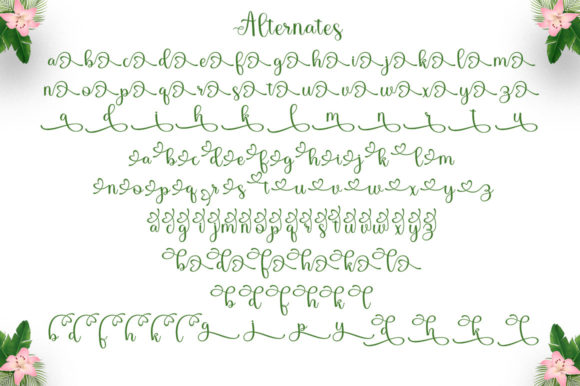 Alternates
a b c d e f g h i j k l m
n o p q r s t u v w x y z
a d i h k l m n r t u
a b c d e f g h i j k l m
n o p q r s t u v w x y z
a c g i j m n o p q r s t u v w x y z
b d f h k l
b d f h k l
b d f h k l g j p y d h k l